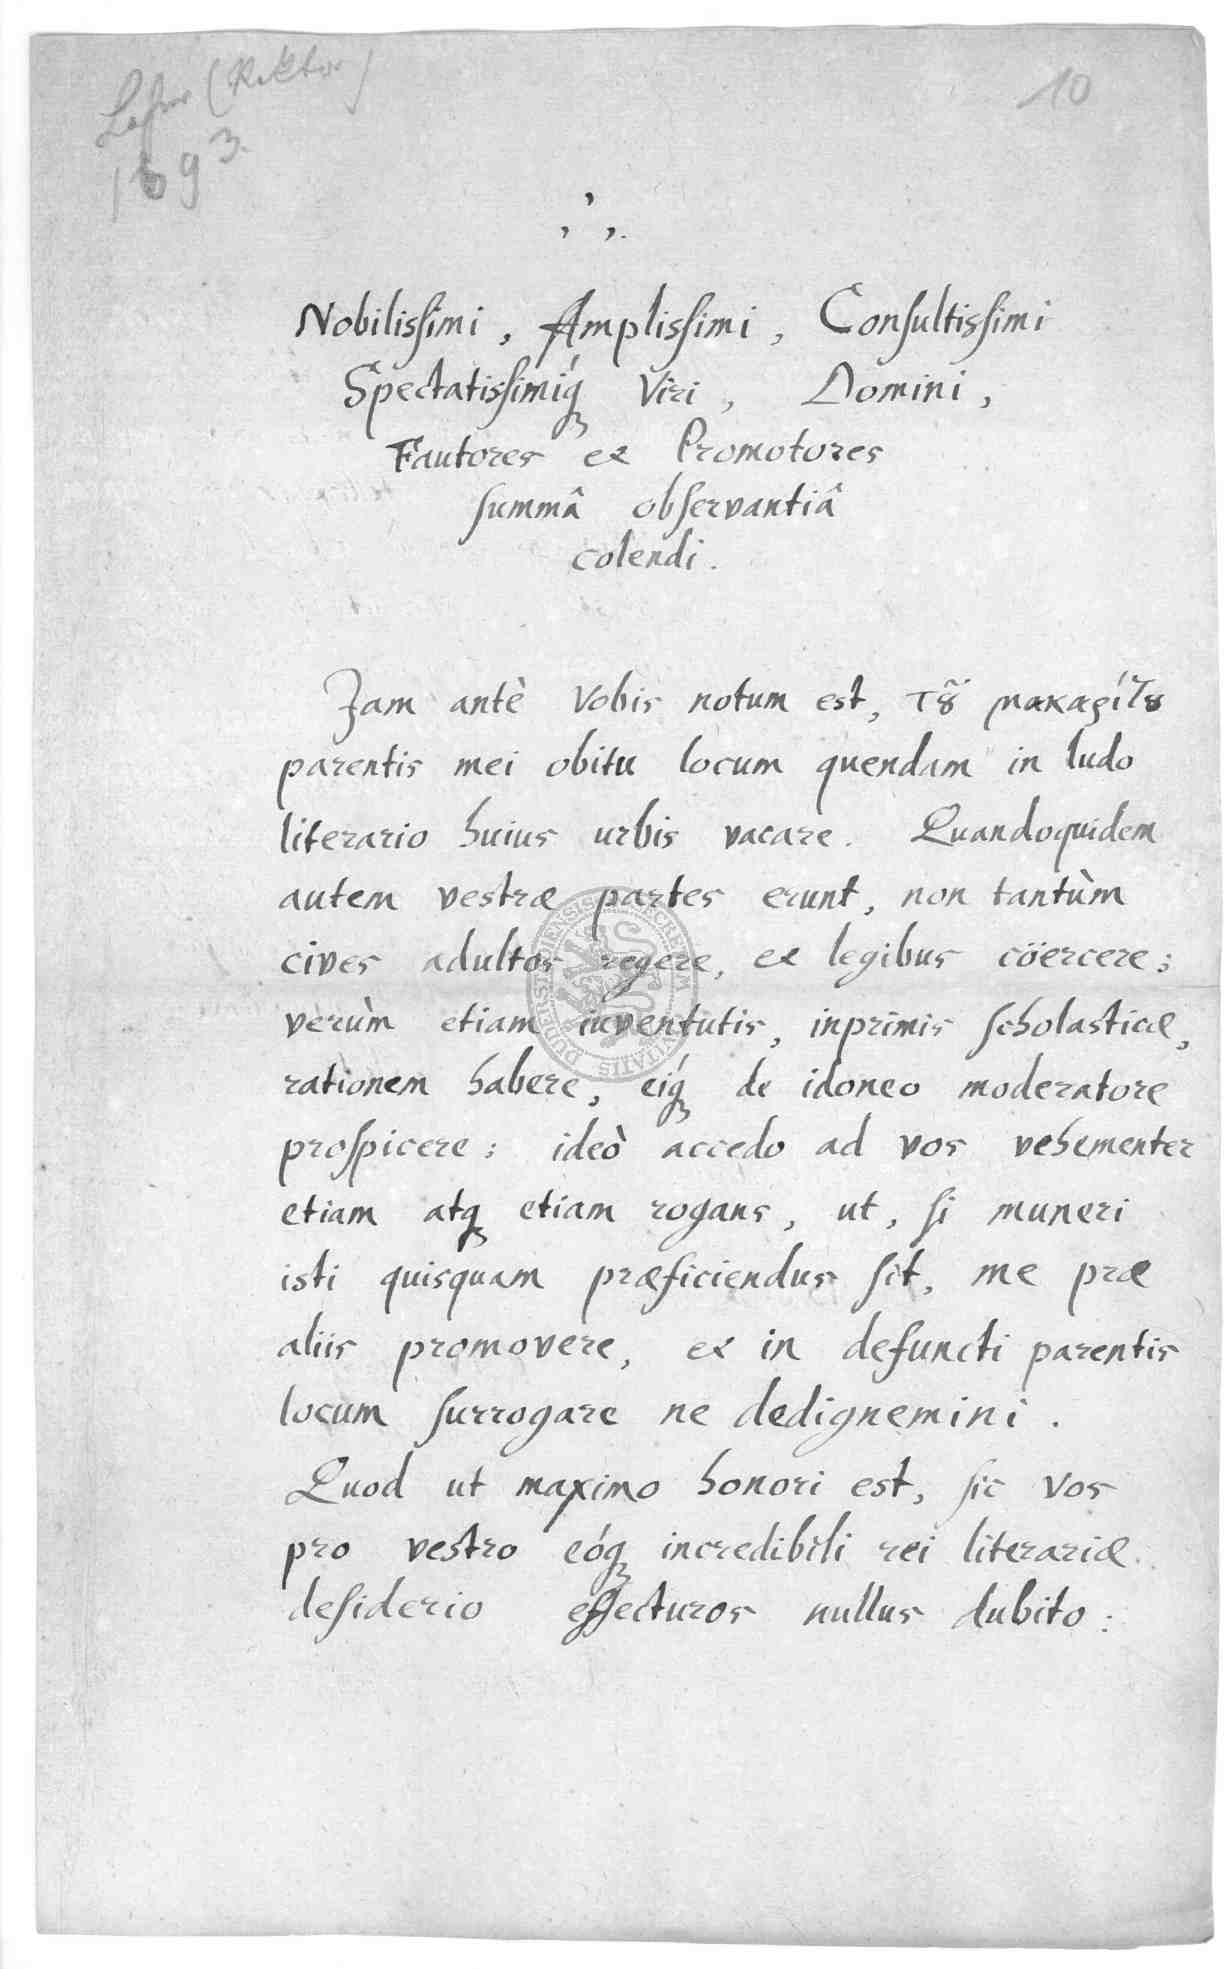 (Rektor)
1693.
10
Nobilissimi, Amplissimi, Consultissimi
Spectatissimiq́ꝫ Viri, Domini,
Fautores et Promotores
summâ observantiâ
colendi.
Jam antè Vobis notum est, τȣ͂ μακαρίτȣ
parentis mei obitu locum quendam in ludo
literario huius urbis vacare. Quandoquidem
autem vestræ partes erunt, non tantùm
cives adultos regere, et legibus cöercere;
verùm etiam iuventutis, inprimis scholasticæ,
rationem habere, eiq́ꝫ de idoneo moderatore
prospicere: ideò accedo ad vos vehementer
etiam atqꝫ etiam rogans, ut, si muneri
isti quisquam præficiendus sit, me præ
aliis promovere, et in defuncti parentis
locum surrogare ne dedignemini.
Quod ut maximo honori est, sic Vos
pro vestro eóqꝫ incredibili rei literariæ
desiderio effecturos nullus dubito: